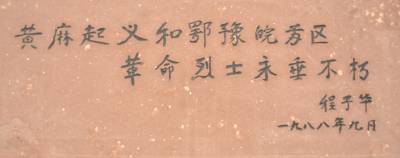 黄麻起义和鄂豫皖苏区
革命烈士永垂不朽
程子华
一九八八年九月